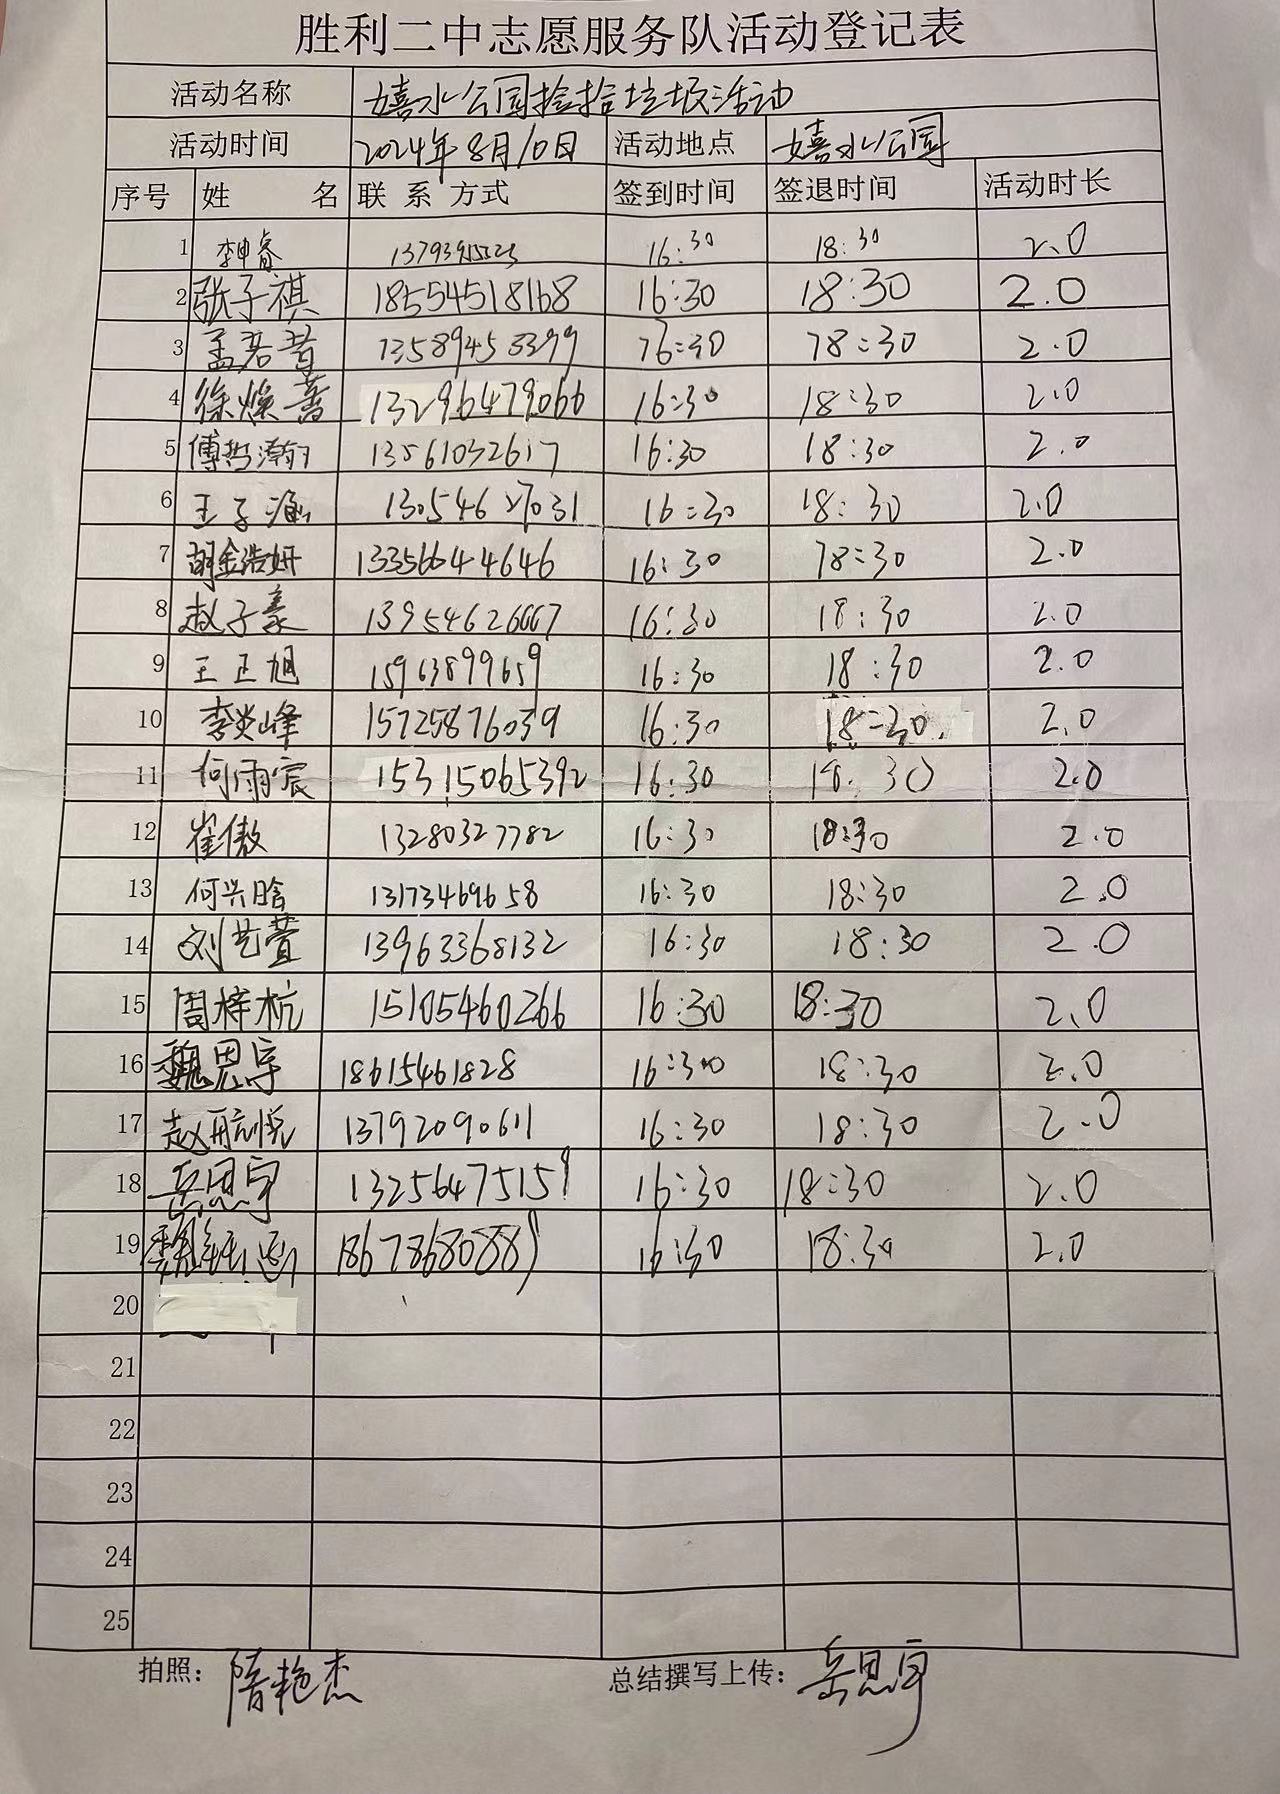 胜利二中志愿服务队活动登记表
活动名称 嬉水公园捡拾垃圾活动
活动时间 2024年8月10日 活动地点 嬉水公园
序号 姓 名 联 系 方式 签到时间 签退时间 活动时长
1 李申睿 16:30 18:30 2.0
2 张子祺 18554518168 16:30 18:30 2.0
3 孟若昔 13589453399 16:30 18:30 2.0
4 徐焕蔷 13296479066 16:30 18:30 2.0
5 傅哲瀚 13561032617 16:30 18:30 2.0
6 王子涵 13054627031 16:30 18:30 2.0
7 胡金浩妍 13356644646 16:30 18:30 2.0
8 赵子豪 13954626667 16:30 18:30 2.0
9 王正旭 15963899659 16:30 18:30 2.0
10 李炎峰 15725876039 16:30 18:30 2.0
11 何雨宸 15315065392 16:30 18:30 2.0
12 崔傲 13280327782 16:30 18:30 2.0
13 何兴晗 13173469658 16:30 18:30 2.0
14 刘艺萱 13963368132 16:30 18:30 2.0
15 周梓杭 15105460266 16:30 18:30 2.0
16 魏思宇 18615461828 16:30 18:30 2.0
17 赵航悦 13792090611 16:30 18:30 2.0
18 岳思宇 13256475159 16:30 18:30 2.0
19 16:30 18:30 2.0
20
21
22
23
24
25
拍照: 隋艳杰 总结撰写上传: 岳思宇